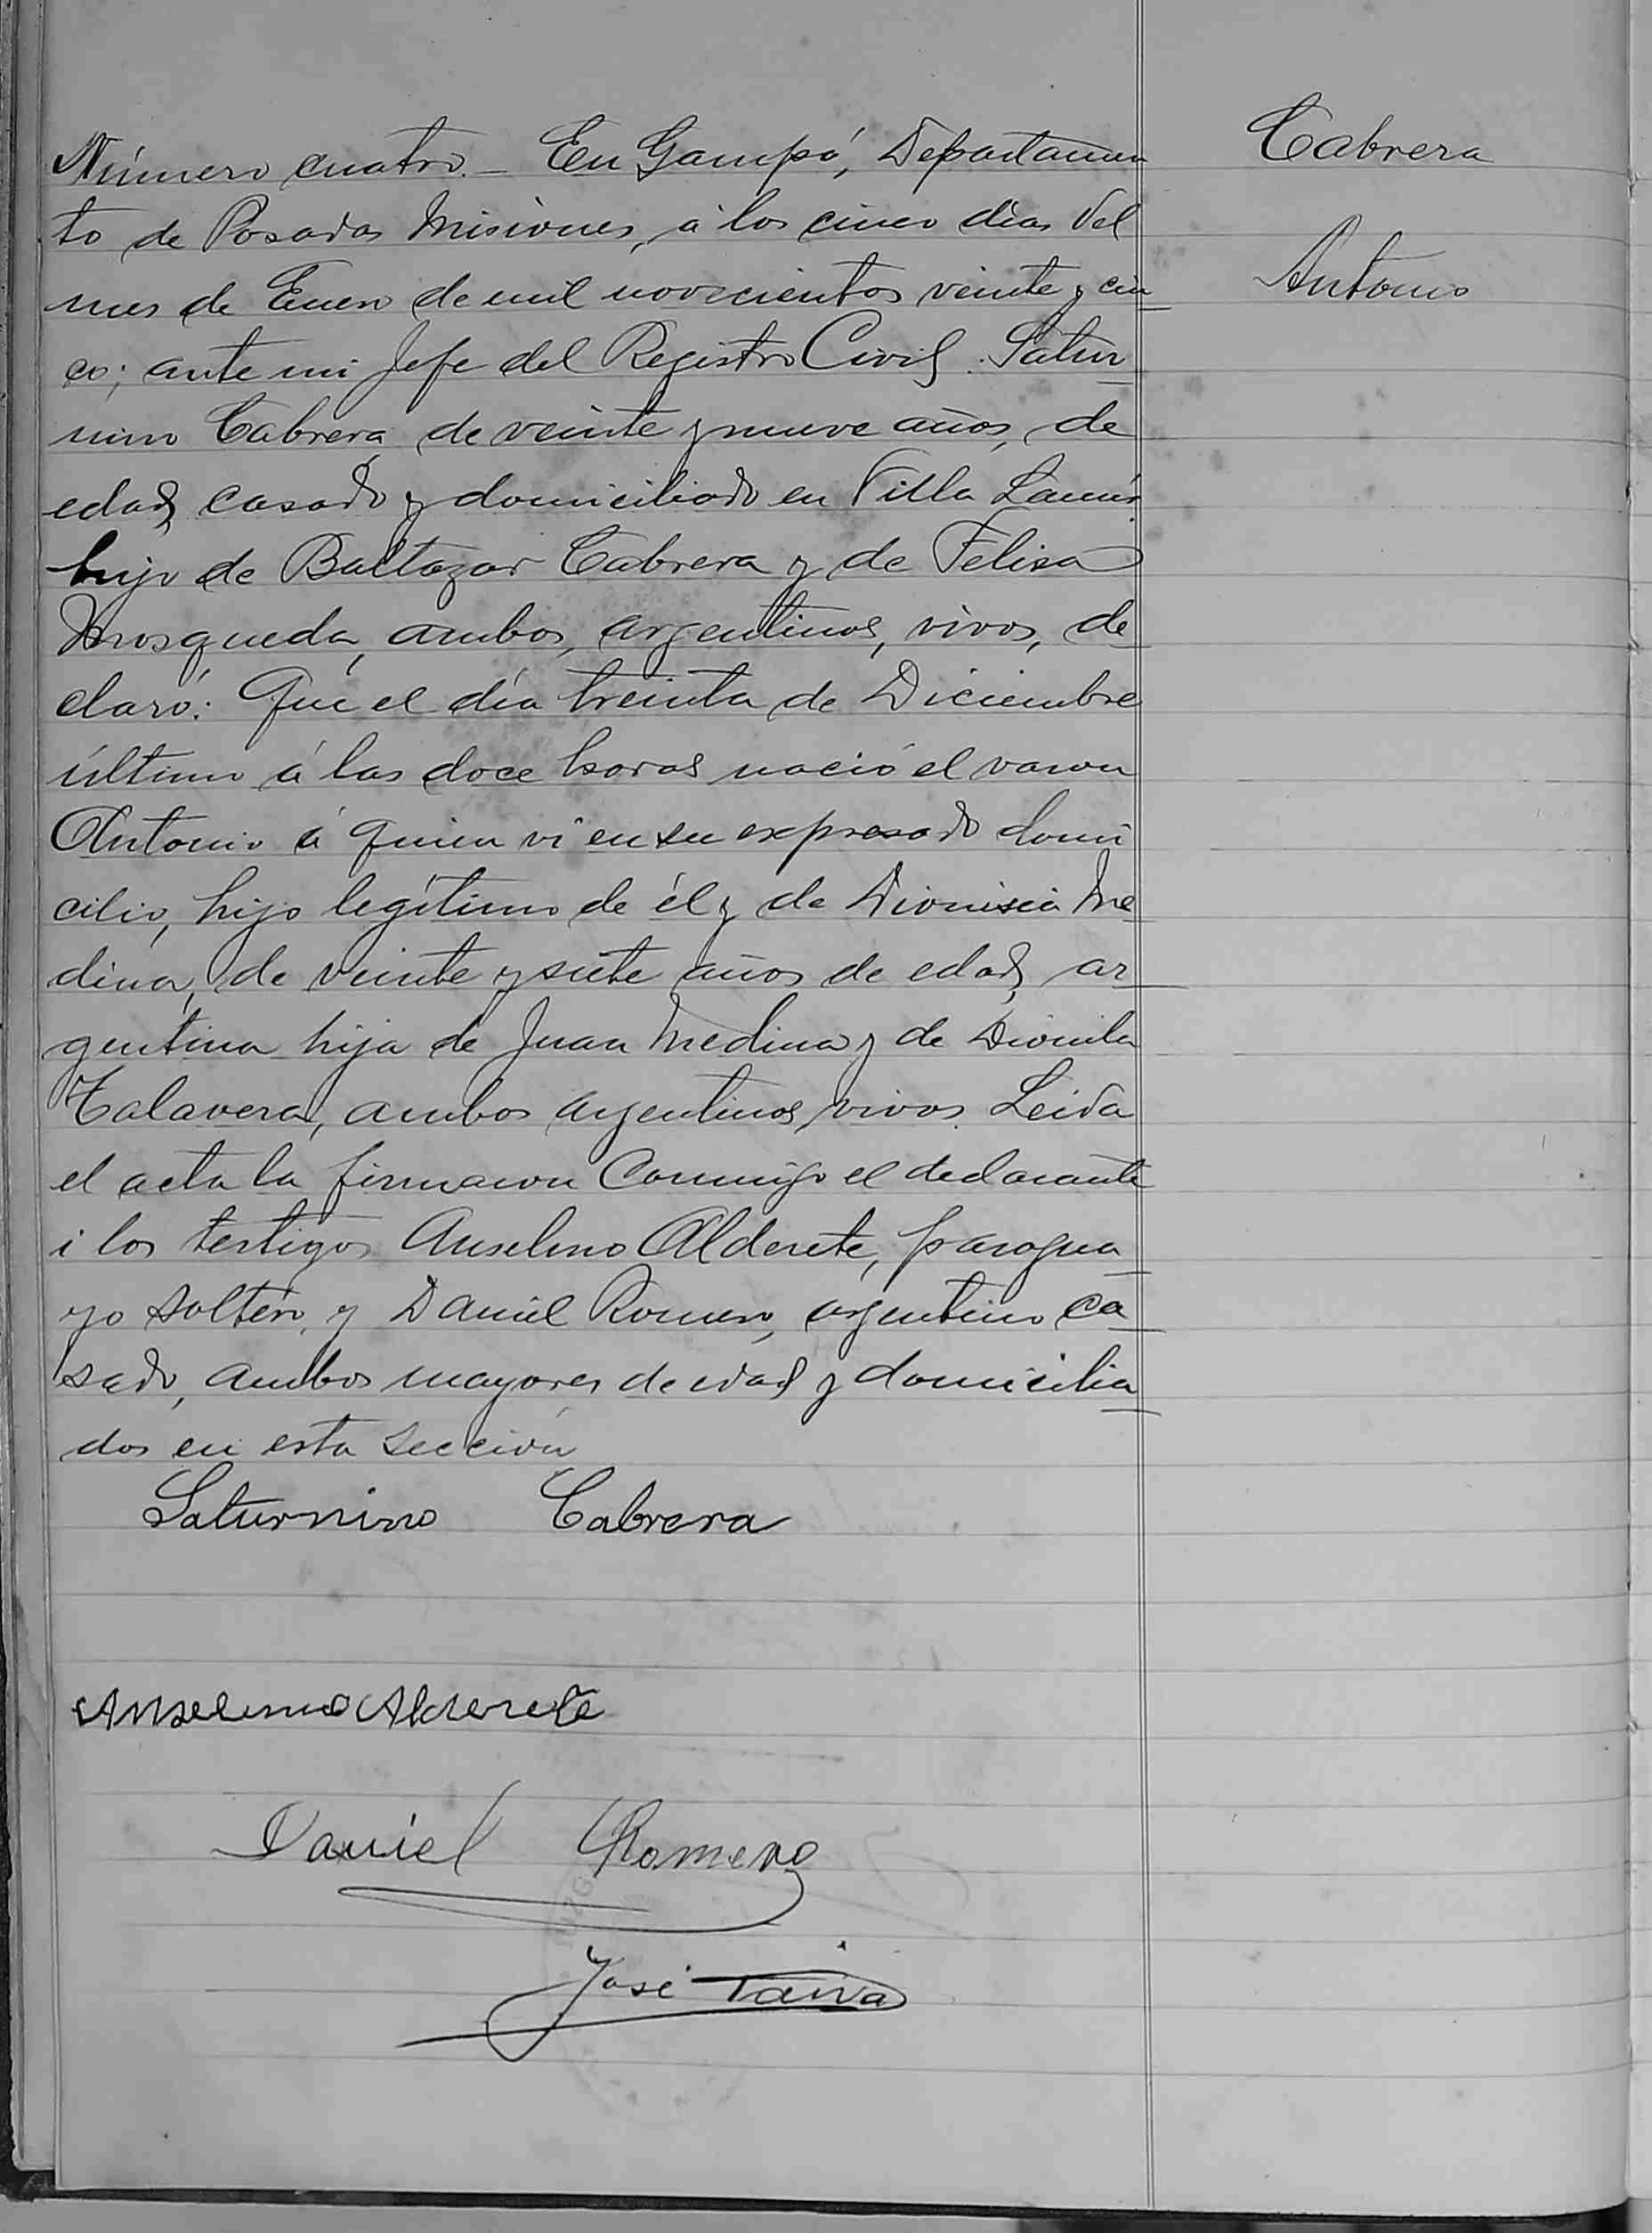 Cabrera
Antonio
Número cuatro.- En Garupá, Departamen
to de Posadas Misiones, á los cinco dias del
mes de Enero de mil novecientos veinte y cin
co; ante mi Jefe del Registro Civil. Satur
nino Cabrera, de veinte y nueve años, de
edad, casado y domiciliado en Villa Lanús
hijo de Baltazar Cabrera y de Felisa
Mosqueda, ambos, argentinos, vivos, de
claró: Que el día treinta de Diciembre
último á las doce horas nació el varon
Antonio á quien vi en su expresado domi
cilio, hijo legítimo de él y de Dionisia Me
dina, de veinte y siete años de edad, ar
gentina hija de Juan Medina y de Dionila
Talavera, ambos argentinos, vivos. Leida
el acta la firmaron conmigo el declarante
i los testigos Anselmo Alderete, paragua
yo soltero, y Daniel Romero, argentino ca
sado, ambos mayores de edad y domicilia
dos en esta sección
Saturnino Cabrera
Anselmo Alderete
Daniel Romero
José Paiva